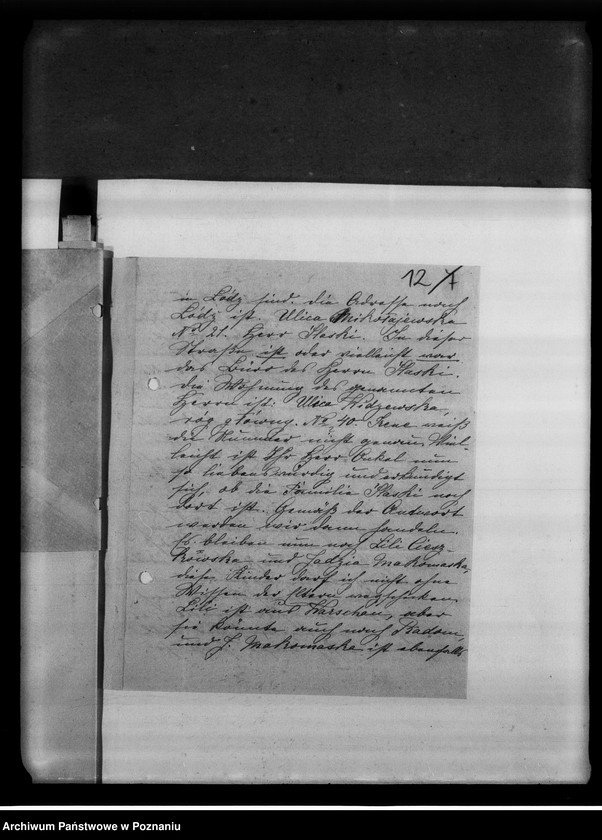 12/7
in Łódz sind. die Adresse nach
Łódz ist. Ulica Mikołajewska
No 21. Herr Slaski. In dieser
Straße ist oder vielleicht war
das Büro des Herrn Slaski.
die Wohnung des genannten
Herrn ist: Ulica Widzewska,
róg Główny. No 40. Irene weiß
die Nummer nicht genau, Viel-
leicht ist Ihr Herr Onkel nun
so liebenswürdig und erkundigt
sich, ob die Familie Slaski noch
dort ist. Gemäß der Antwort
werden wir dann handeln.
Es bleiben nun noch Lili Ciesz-
kówska und Jadzia Makomaska,
diese Kinder darf ich nicht ohne
Wissen der Eltern wegschicken.
Lili ist aus Warschau, aber
sie könnte auch nach Radom,
und J. Makomaska ist ebenfalls
Archiwum Państwowe w Poznaniu